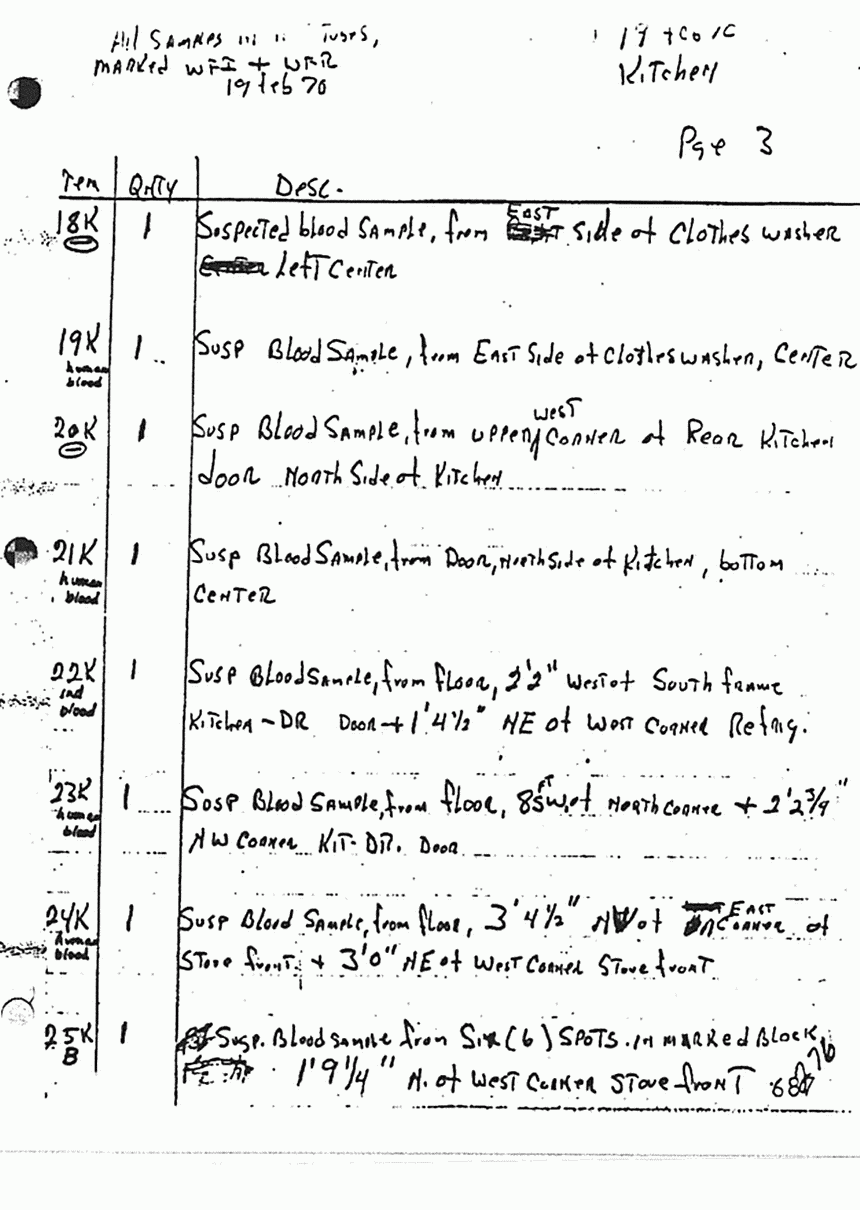 All Samples in Tubes,
MARKed WFI + WFR
19 Feb 70
Kitchen
Pge 3
Item Qnty Desc.
18K 1 Suspected blood Sample, from EAST Side of Clothes washer
left Center
19K 1 Susp Blood Sample, from EAST Side of Clothes washer, Center
human
blood
20K 1 Susp Blood Sample, from upper west Corner of Rear Kitchen
door North Side of Kitchen
21K 1 Susp Blood Sample, from Door, North Side of Kitchen, bottom
human
blood
Center
22K 1 Susp Blood Sample, from floor, 2'2" West of South frame
ind
blood
Kitchen - DR Door + 1'4 1/2" NE of West Corner Refrig.
23K 1 Susp Blood Sample, from floor, North Corner +
human
blood
NW Corner KIT-DR. Door
24K 1 Susp Blood Sample, from floor, 3'4 1/2" NW of EAST Corner of
human
blood
Stove front + 3'0" NE of West Corner Stove front
25K 1 Susp. Blood Sample from Six (6) SPOTS in MARKed Block,
B
1'9 1/4" N. of West Corner Stove front